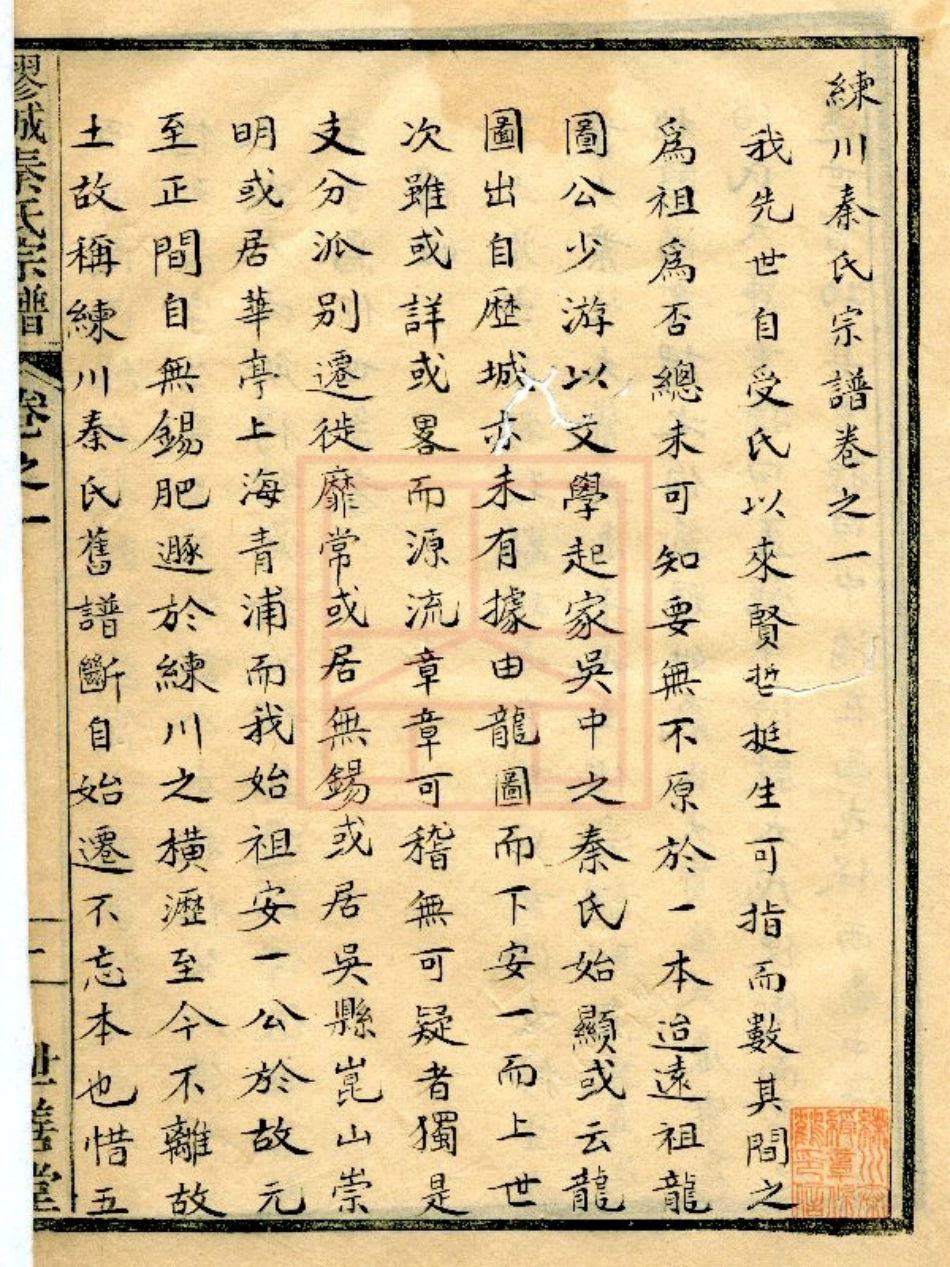 練川秦氏宗譜卷之一
我先世自受氏以來賢哲挺生可指而數其間之
爲祖爲否總未可知要無不原於一本迨遠祖龍
圖公少游以文學起家吳中之秦氏始顯或云龍
圖出自歷城亦未有據由龍圖而下安一而上世
次雖或詳或畧而源流章章可稽無可疑者獨是
支分派别遷徙靡常或居無錫或居吳縣崑山崇
明或居華亭上海青浦而我始祖安一公於故元
至正間自無錫肥遯於練川之橫瀝至今不離故
土故稱練川秦氏舊譜斷自始遷不忘本也惜五
秦氏宗譜
卷之一
世善堂